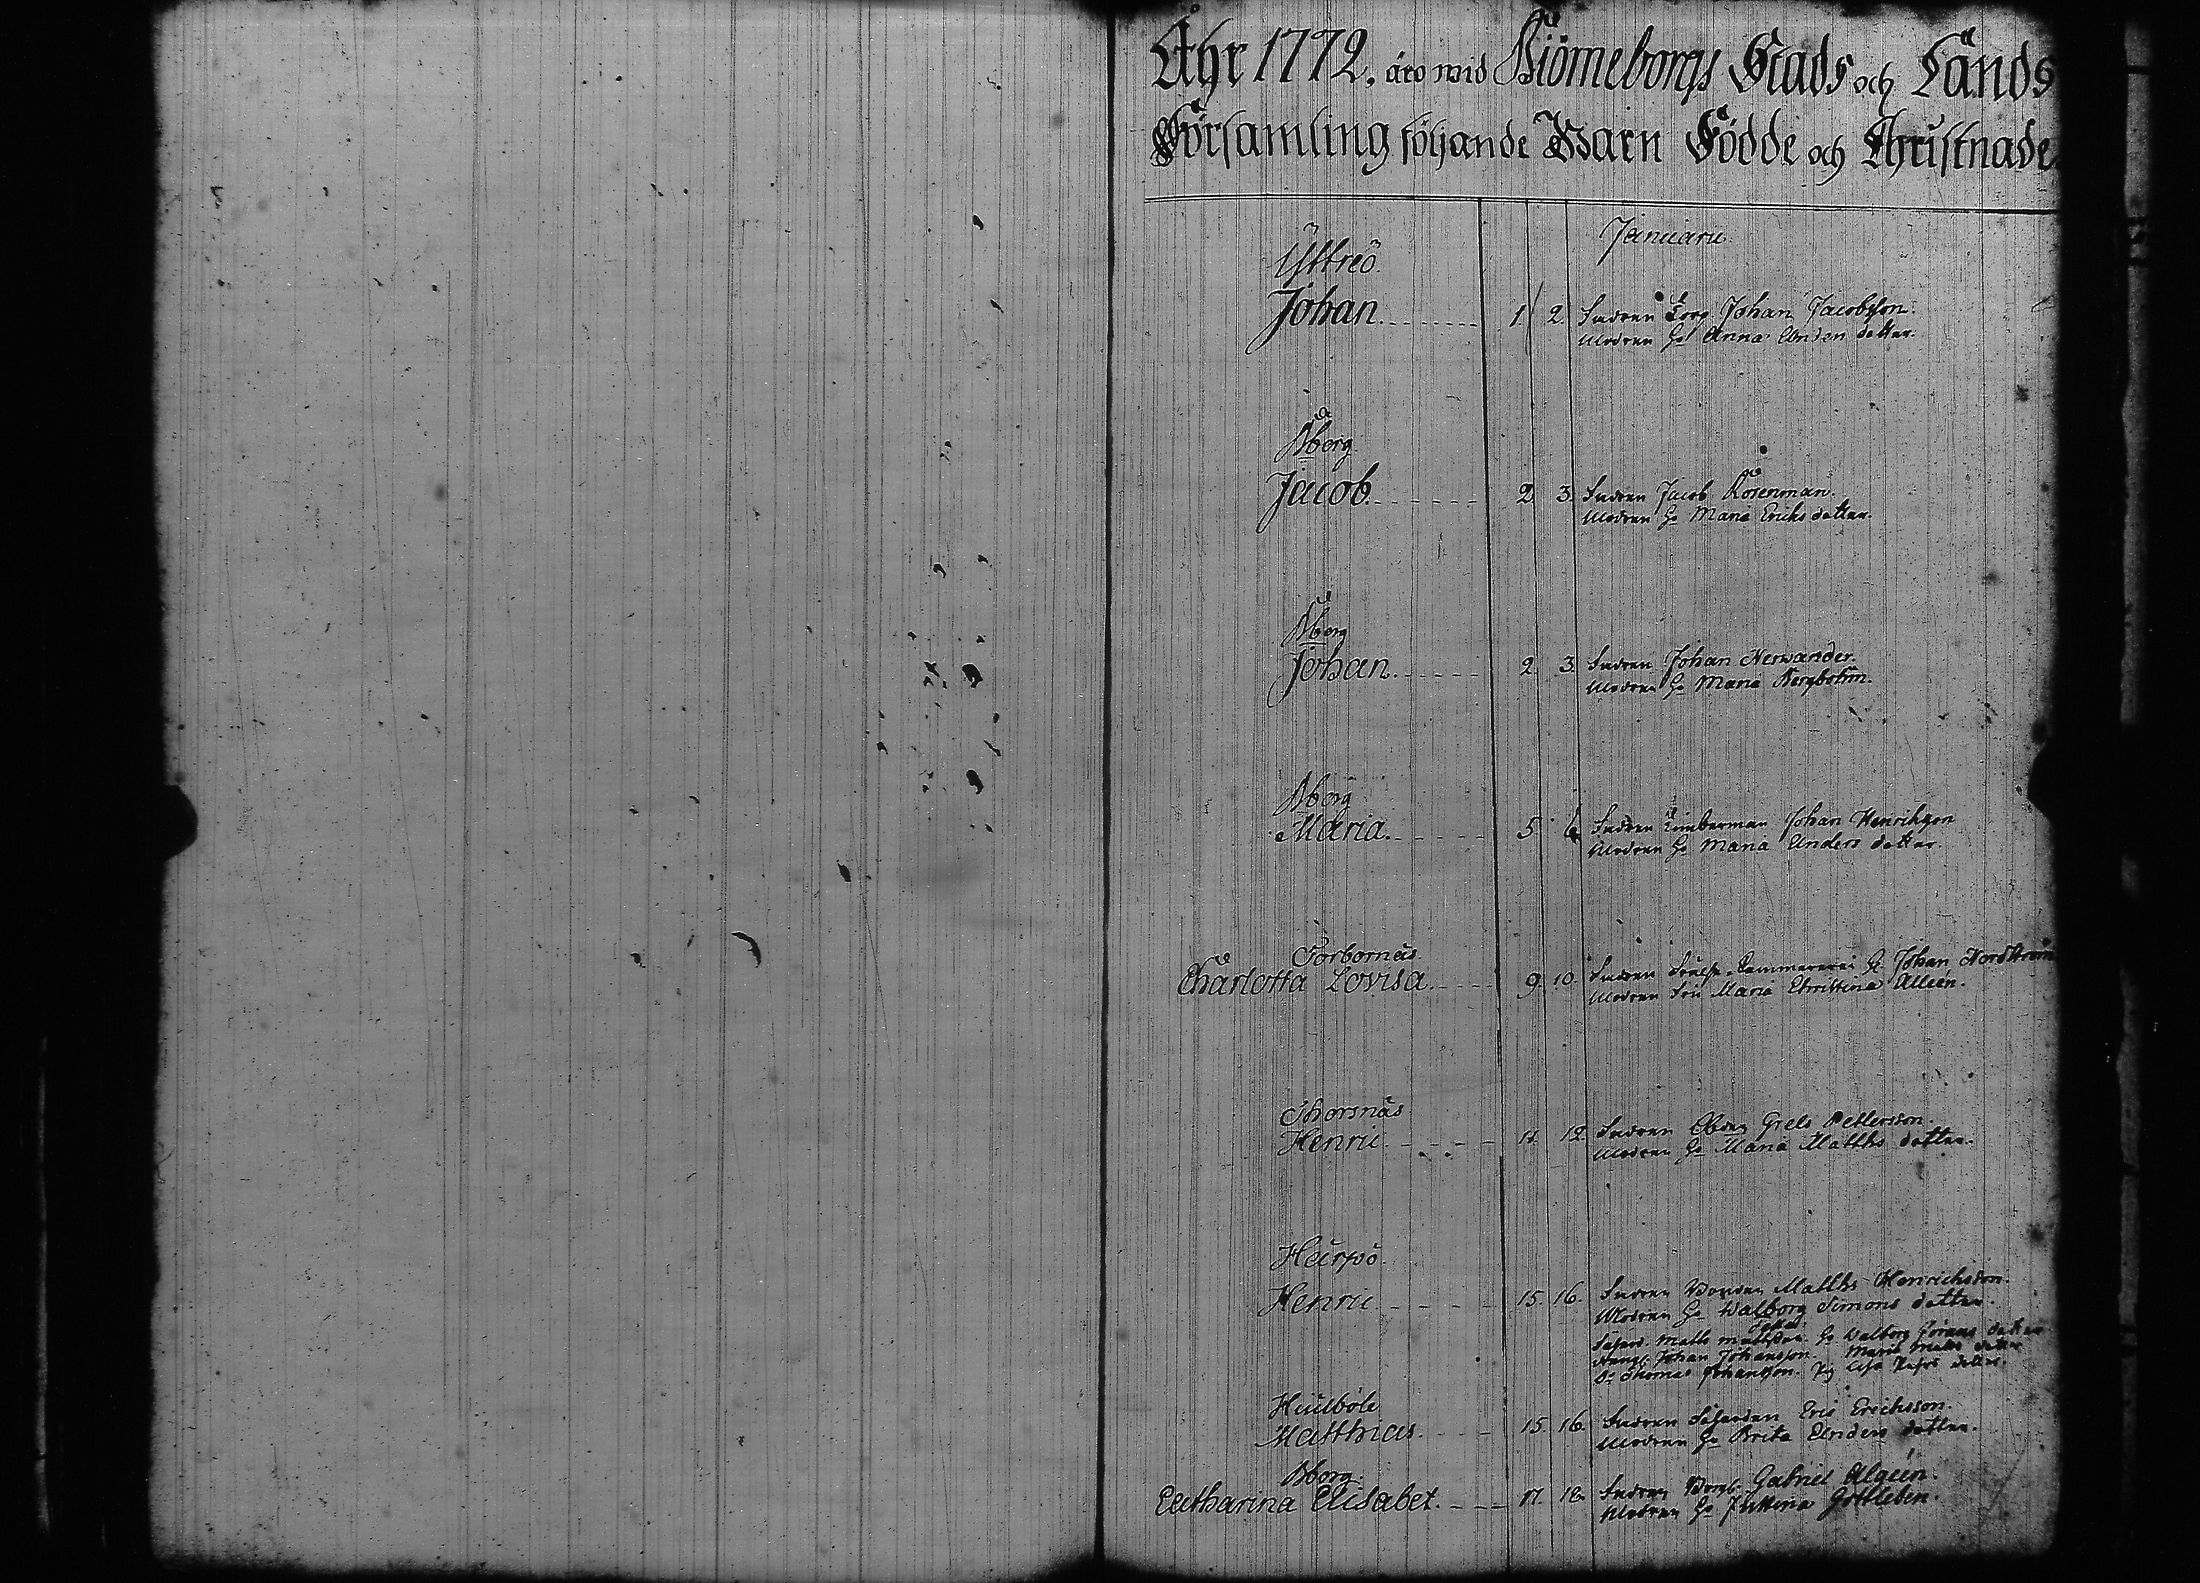 Åhr 1772. äro wid Biörneborgs Stads och Lands
Församling följande Barn Födde och Christnade.
Januarii
Yttreö.
Johan. 1. 2. Fadren Torp Johan Jacobsson.
Modren H. Anna Anders dotter.
Bborg.
Jacob. 2. 3. Fadren Jacob Rosenman.
Modren H. Maria Erichs dotter.
Bborg
Johan. 2. 3. Fadren Johan Nerwander.
Modren H. Maria Bergbohm.
Bborg
Maria. 5. 6. Fadren Timberman Johan Henrikson
Modren H. Maria Anders dotter.
Torbornäs.
Charlotta Lovisa. 9. 10. Fadren Johan Nordström
Modren Fru Maria Christina Alleén.
Thorsnäs
Henric. 11. 12. Fadren Grels Pettersson.
Modren H. Maria Matths dotter.
Heinoo.
Henric 15. 16. Fadren Bonden Matths Henrichsson.
Modren H. Walborg Simons dotter.
Matts H. Walborg Jörans dotter
Johan Johansson. Maria Matts dotter
D. Thomas Johansson. dotter.
Hiulböle
Matthias. 15. 16. Fadren Eric Erichsson.
Modren H. Brita Anders dotter.
Bborg.
Catharina Elisabet. 17. 18. Fadren Gabriel Algeen.
Modren H. Justina Gottleben.